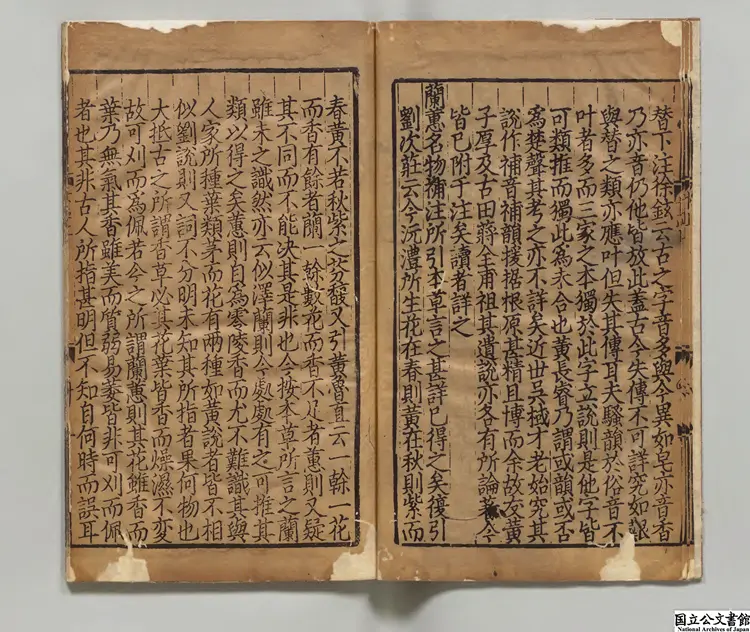 替下注徐鉉云古之字音多與今異如皂亦音香
乃亦音仍他皆放此蓋古今失傳不可詳究如艱
與替之類亦應叶但失其傳耳夫騷韻於俗音不
叶者多而三家之本獨於此字立說則是他字皆
可類推而獨此爲未合也黃長睿乃謂或韻或否
爲楚聲其考之亦不詳矣近世吳棫才老始究其
說作補音補韻援据根原甚精且博而余故友黃
子厚及古田蔣全甫祖其遺說亦各有所論著今
皆已附于注矣讀者詳之
蘭蕙名物補注所引本草言之甚詳已得之矣復引
劉次莊云今沅澧所生花在春則黃在秋則紫而
春黃不若秋紫之芬馥又引黃魯直云一榦一花
而香有餘者蘭一榦數花而香不足者蕙則又疑
其不同而不能決其是非也今按本草所言之蘭
雖未之識然亦云似澤蘭則今處處有之可推其
類以得之矣蕙則自爲零陵香而尤不難識其與
人家所種葉類茅而花有兩種如黃說者皆不相
似劉說則又詞不分明未知其所指者果何物也
大抵古之所謂香草必其花葉皆香而燥濕不變
故可刈而爲佩若今之所謂蘭蕙則其花雖香而
葉乃無氣其香雖美而質弱易萎皆非可刈而佩
者也其非古人所指甚明但不知自何時而誤耳
国立公文書館
National Archives of Japan